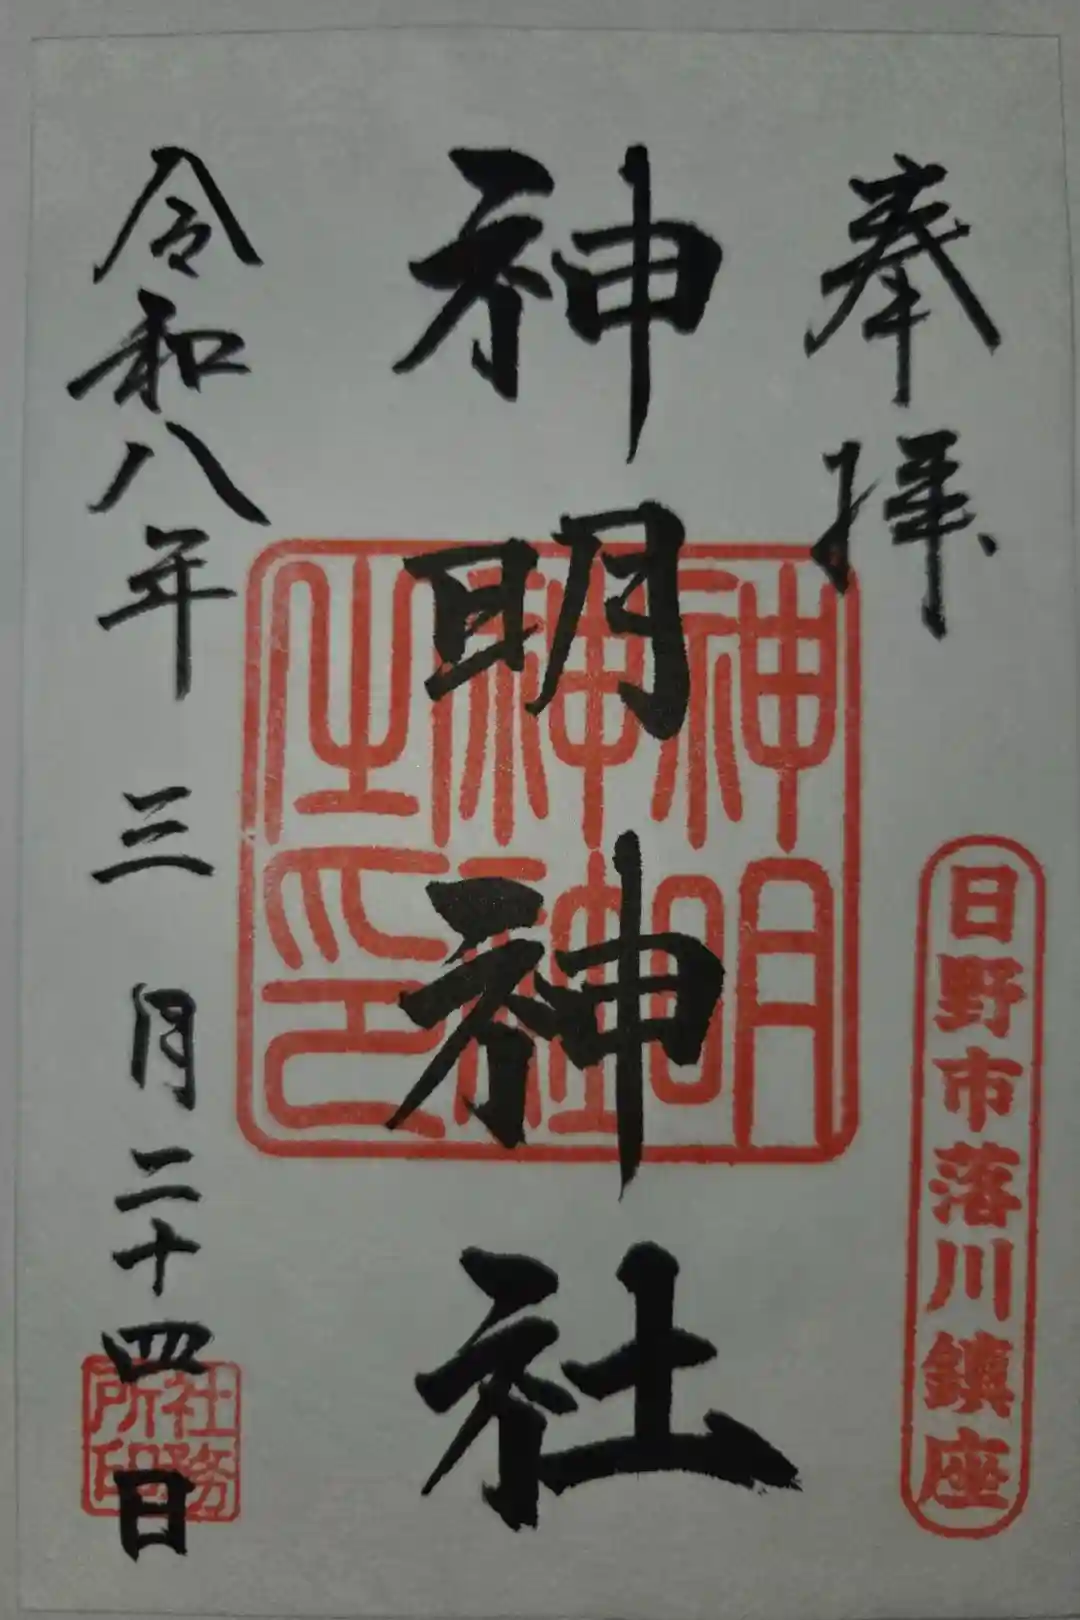 奉拝
日野市落川鎮座
神明神社
神明神社之印
令和八年 三月二十四日
社務所印